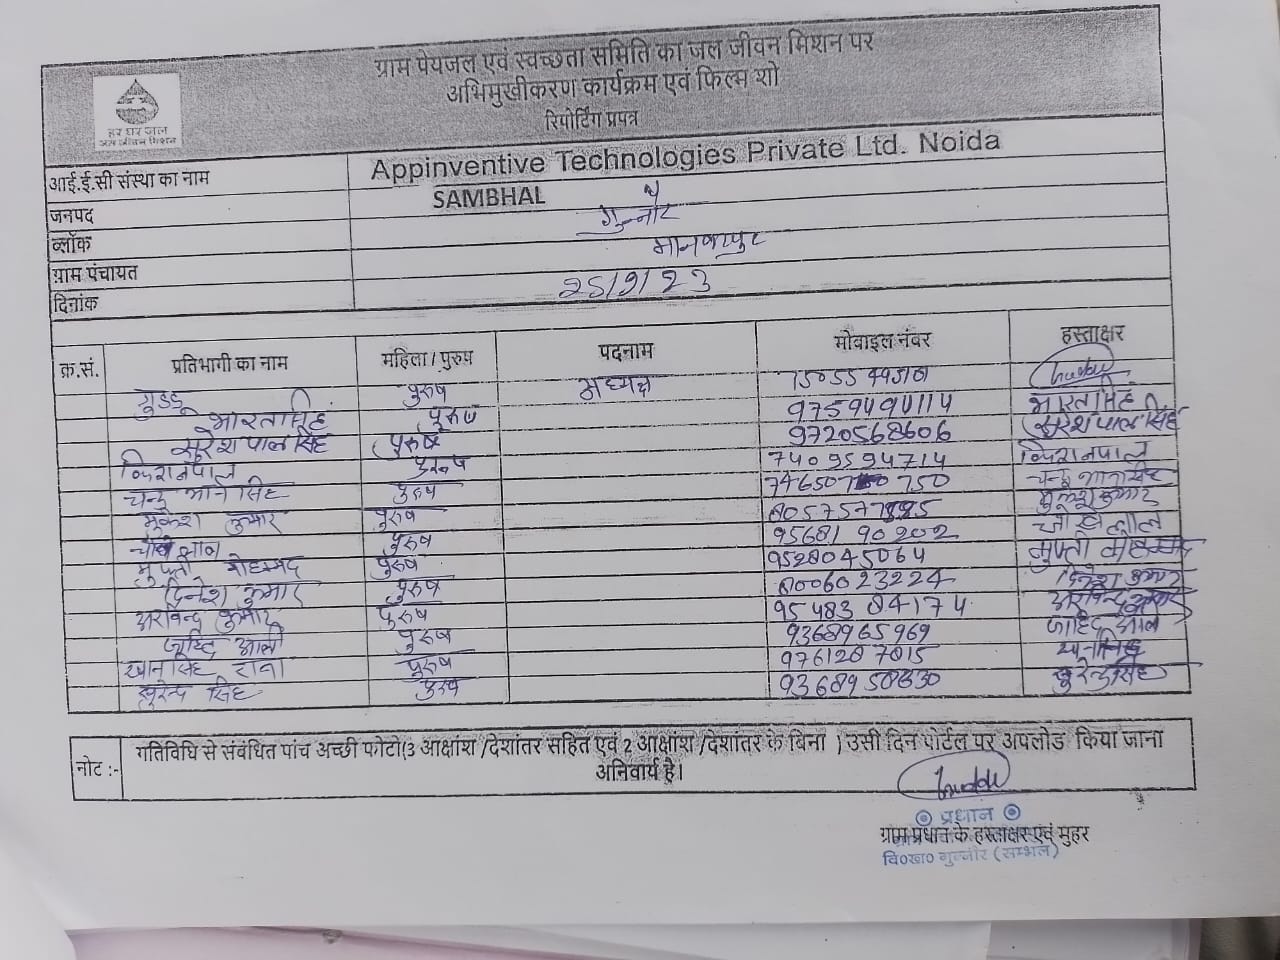 ग्राम पेयजल एवं स्वच्छता समिति का जल जीवन मिशन पर
अभिमुखीकरण कार्यक्रम एवं फिल्म शो
रिपोर्टिंग प्रपत्र
हर घर जल
जल जीवन मिशन
आई.ई.सी संस्था का नाम Appinventive Technologies Private Ltd. Noida
जनपद SAMBHAL
ब्लॉक गुन्नौर
ग्राम पंचायत
दिनांक 25/9/23
क्र.सं. प्रतिभागी का नाम महिला / पुरुष पदनाम मोबाइल नंबर हस्ताक्षर
गुड्डू पुरुष अध्यक्ष
भारत सिंह पुरुष 9759494114 भारत सिंह
सुरेशपाल सिंह पुरुष 9720568606 सुरेशपाल सिंह
किशनपाल पुरुष 7409594714 किशनपाल
चन्द्र भान सिंह पुरुष चन्द्र भान सिंह
मुकेश कुमार पुरुष मुकेश कुमार
पुरुष 9568190202
मुफ्ती मोहम्मद पुरुष 9528045064 मुफ्ती मोहम्मद
दिनेश कुमार पुरुष 8006023224 दिनेश कुमार
अरविन्द कुमार पुरुष 9548304174 अरविन्द कुमार
जाहिद अली पुरुष 9368965969 जाहिद अली
पुरुष 9761207015
सुरेन्द्र सिंह पुरुष सुरेन्द्र सिंह
नोट :- गतिविधि से संबंधित पांच अच्छी फोटो(3 आक्षांश /देशांतर सहित एवं 2 आक्षांश /देशांतर के बिना ) उसी दिन पोर्टल पर अपलोड किया जाना
अनिवार्य है।
प्रधान
ग्राम प्रधान के हस्ताक्षर एवं मुहर
वि०ख० गुन्नौर (सम्भल)